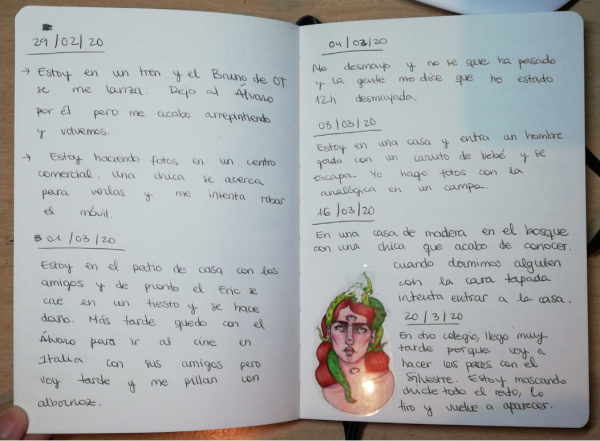 29/02/20
→ Estoy en un tren y el Bruno de OT
se me lanza. Dejo al Álvaro
por él pero me acabo arrepintiendo
y volvemos.
→ Estoy haciendo fotos en un centro
comercial. Una chica se acerca
para verlas y me intenta robar
el móvil.
01/03/20
Estoy en el patio de casa con los
amigos y de pronto el Eric se
cae en un tiesto y se hace
daño. Más tarde quedo con el
Álvaro para ir al cine en
Italia con sus amigos pero
voy tarde y me pillan con
albornoz.
04/03/20
Me desmayo y no se que ha pasado
y la gente me dice que he estado
12h desmayada.
08/03/20
Estoy en una casa y entra un hombre
gordo con un carrito de bebé y se
escapa. Yo hago fotos con la
analógica en un campo.
16/03/20
En una casa de madera en el bosque
con una chica que acabo de conocer.
cuando dormimos alguien
con la cara tapada
intenta entrar a la casa.
20/3/20
En otro colegio, llego muy
tarde porque voy a
hacer las paces con el
Silvestre. Estoy mascando
chicle todo el rato, lo
tiro y vuelve a aparecer.